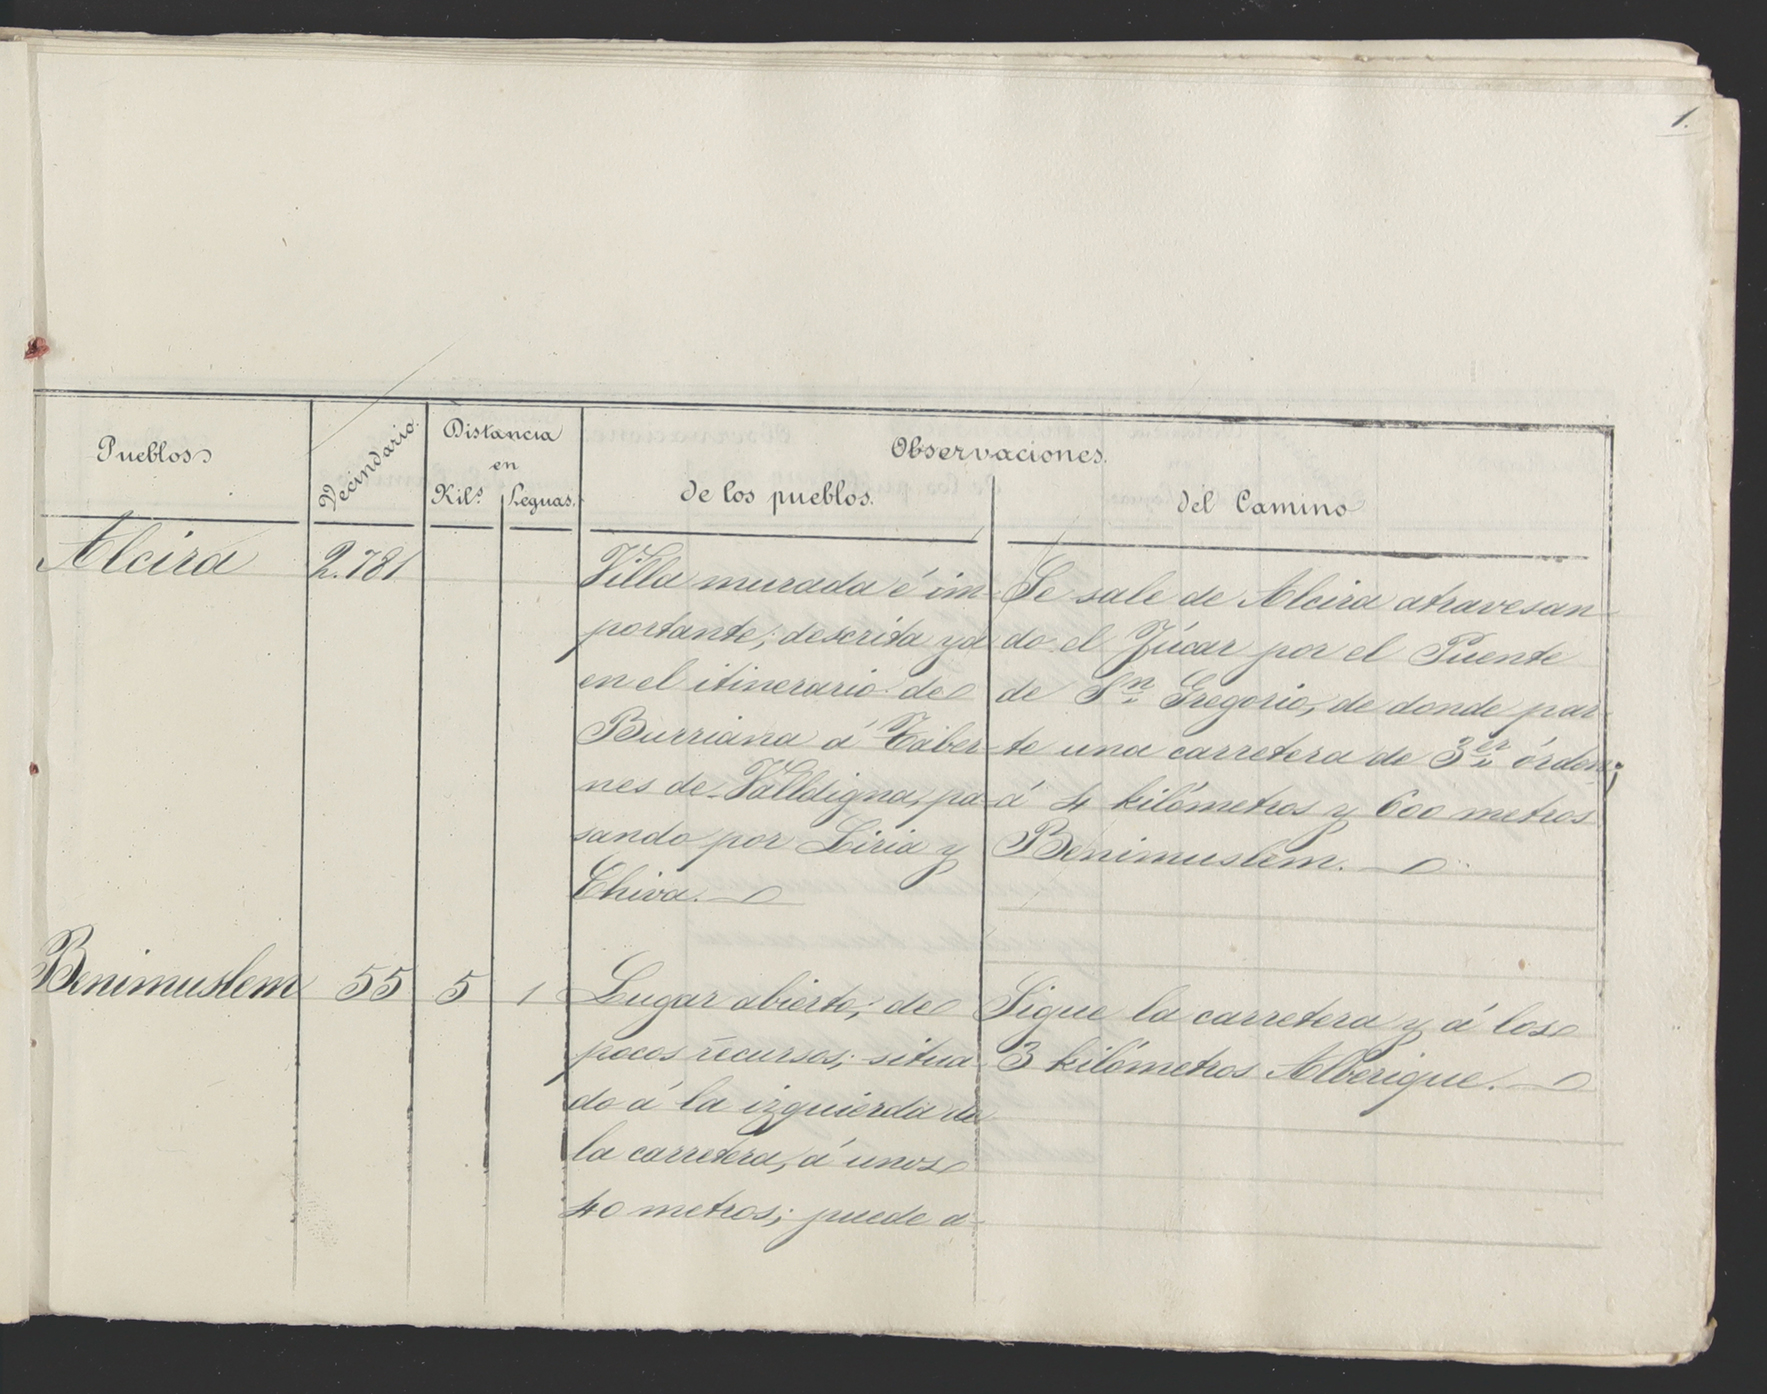 1.
Pueblos
Vecindario.
Distancia
en
Kil.s
Leguas.
Observaciones.
de los pueblos.
del Camino
Alcira
2.781
Villa murada é im-
portante; descrita ya
en el itinerario de
Burriana á Taber-
nes de Valldigna, pa-
sando por Liria y
Chiva.
Se sale de Alcira atravesan-
do el Júcar por el Puente
de Sn. Gregorio, de donde par-
te una carretera de 3er órden;
á 4 kilómetros y 600 metros
Benimuslem.
Benimuslem
55
5
1
Lugar abierto; de
pocos recursos; situa
do á la izquierda de
la carretera, á unos
40 metros; puede a-
Sigue la carretera y á los
3 kilómetros Alberique.